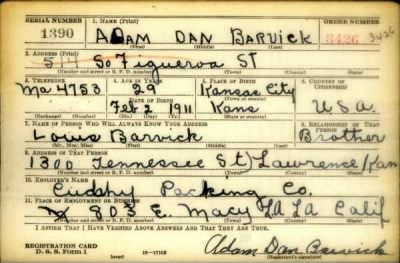 SERIAL NUMBER 1. NAME (Print) ORDER NUMBER
1390 ADAM DAN BARVICK 3426 3426
(First) (Middle) (Last)
2. ADDRESS (Print)
514 So Figueroa St
(Number and street or R. F. D. number) (Town) (County) (State)
3. TELEPHONE 4. AGE IN YEARS 5. PLACE OF BIRTH 6. COUNTRY OF CITIZENSHIP
Ma 4753 29 Kansas City
DATE OF BIRTH (Town or county)
Feb 2 1911 Kans U.S.A.
(Exchange) (Number) (Mo.) (Day) (Yr.) (State or country)
7. NAME OF PERSON WHO WILL ALWAYS KNOW YOUR ADDRESS 8. RELATIONSHIP OF THAT PERSON
Louis Barvick Brother
9. ADDRESS OF THAT PERSON
1300 Tennessee St) Lawrence, Kan
(Number and street or R. F. D. number) (Town) (County) (State)
10. EMPLOYER'S NAME
Cudahy Packing Co.
11. PLACE OF EMPLOYMENT OR BUSINESS
803 E. Macy LA LA Calif
(Number and street or R. F. D. number) (Town) (County) (State)
I AFFIRM THAT I HAVE VERIFIED ABOVE ANSWERS AND THAT THEY ARE TRUE.
REGISTRATION CARD
D. S. S. Form 1 Adam Dan Barvick
(Registrant's signature)